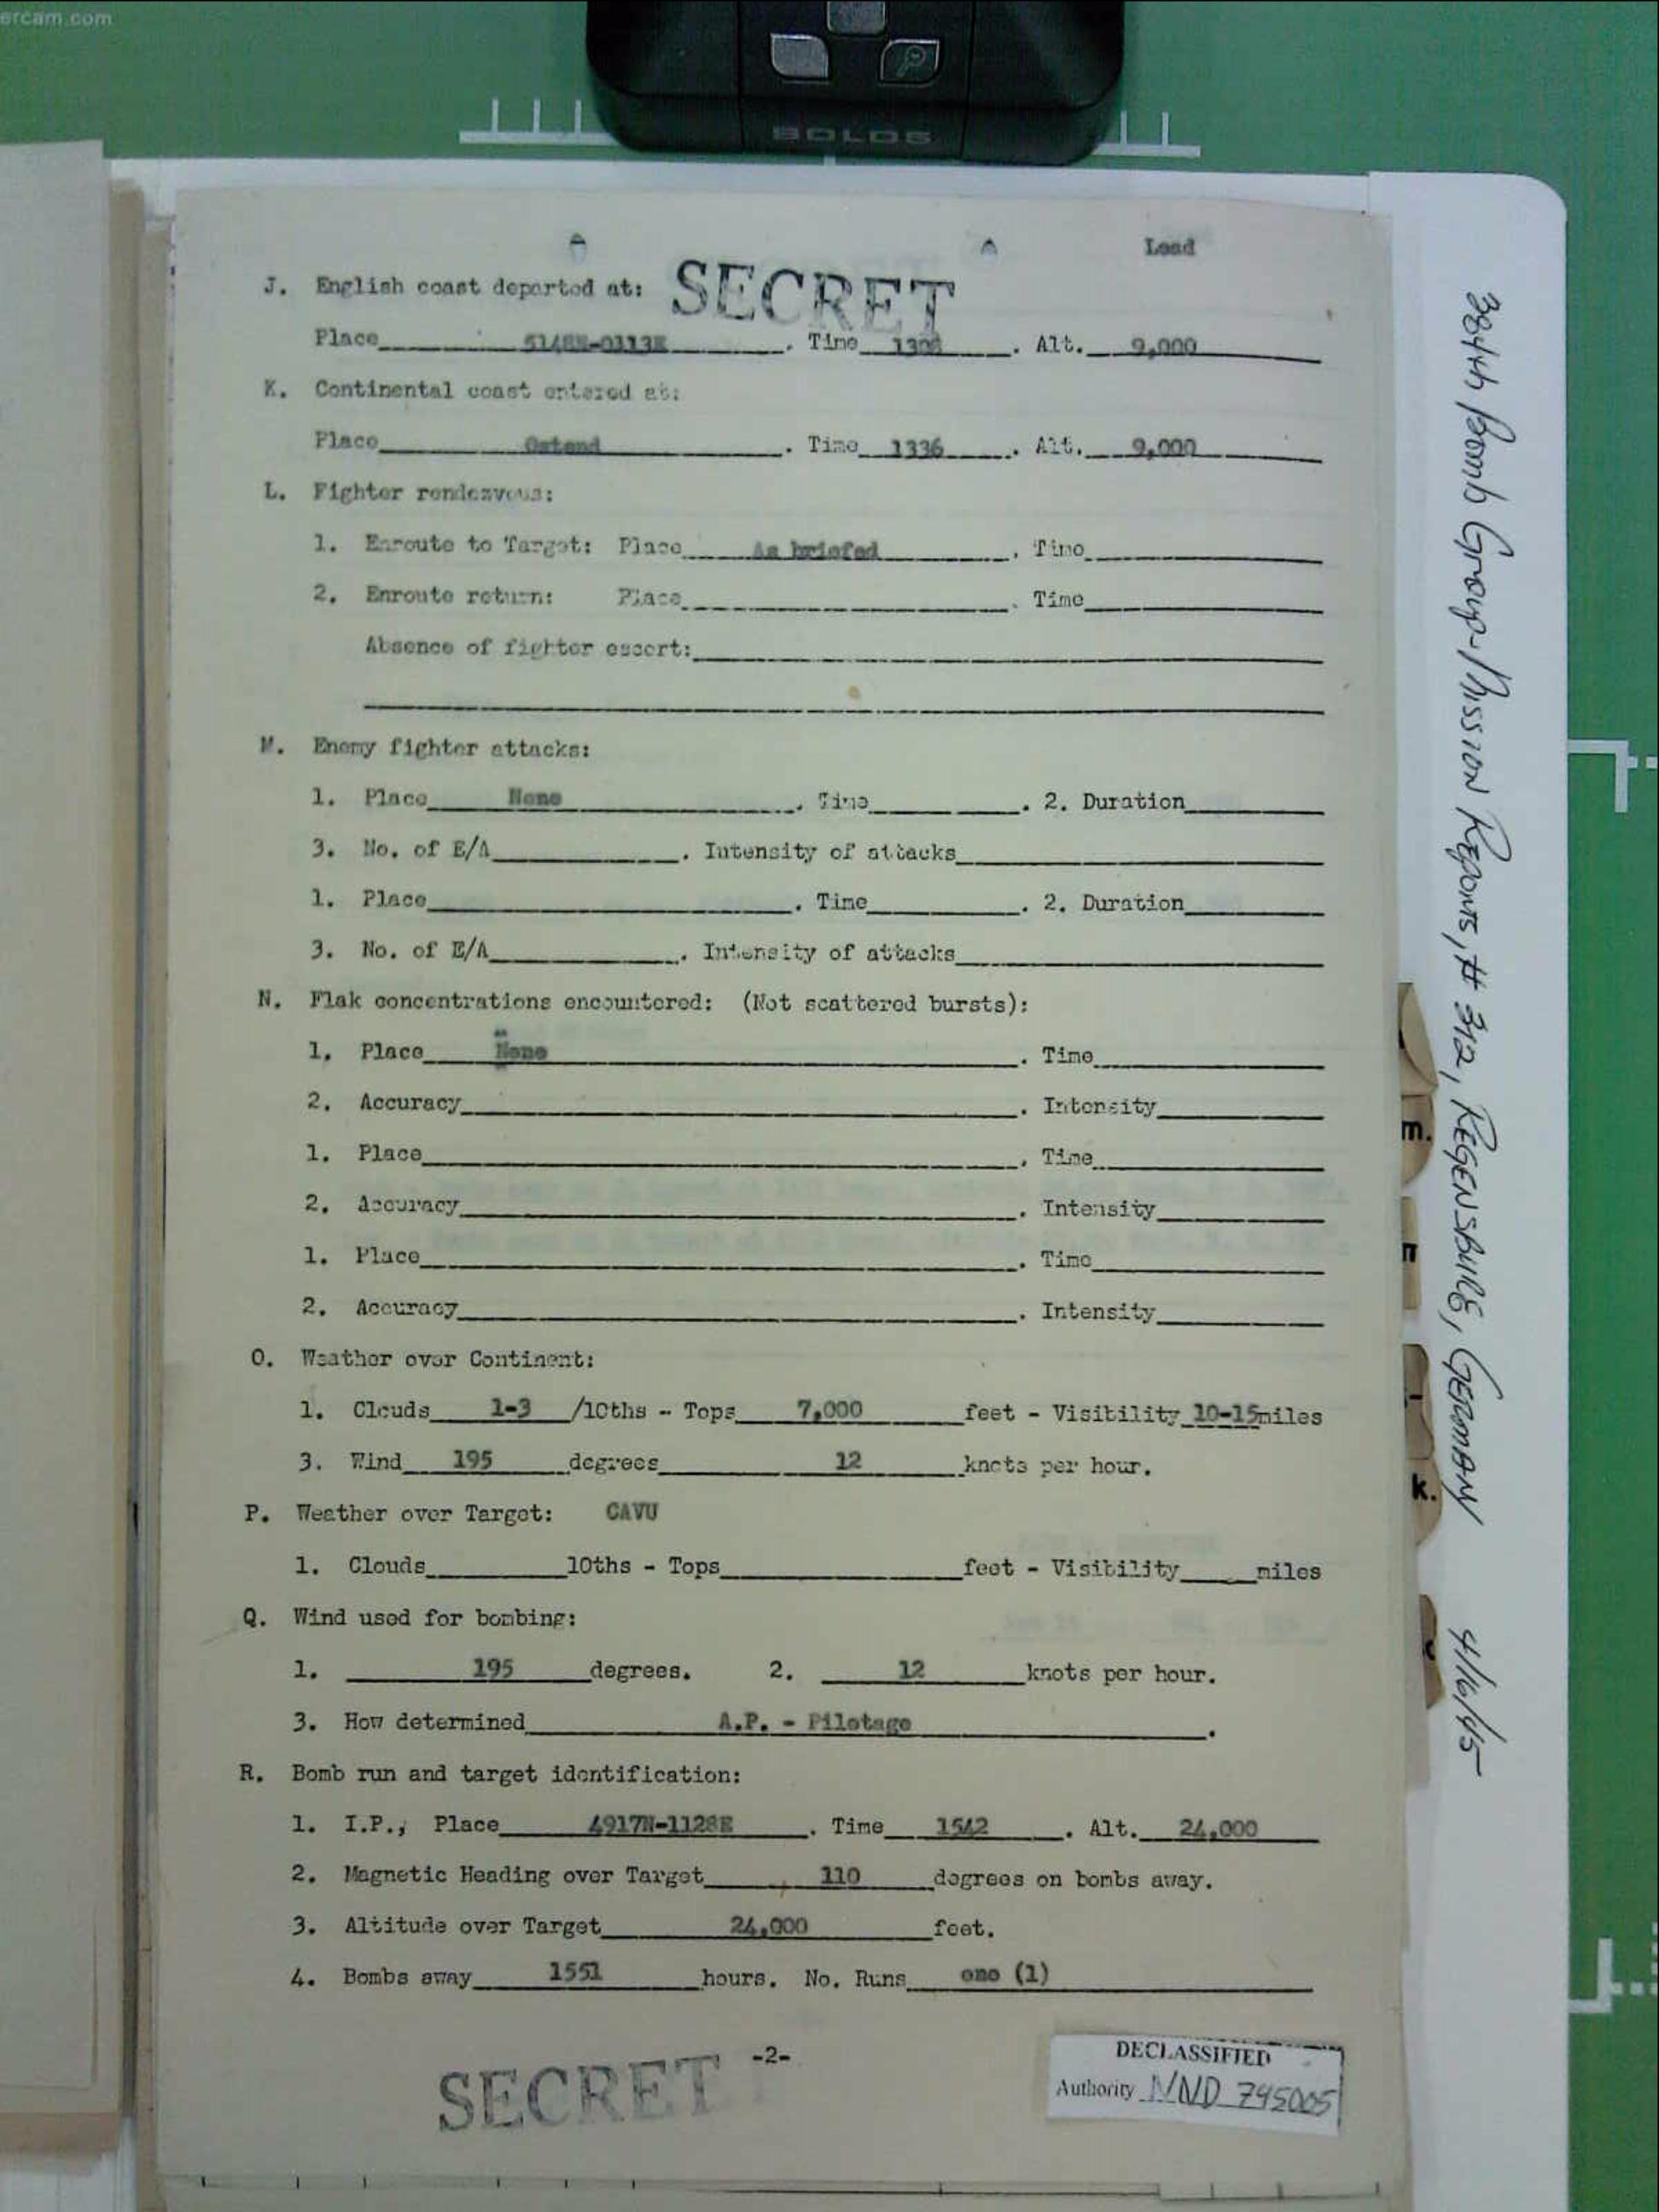 ercam.com
BOLDS
Lead
SECRET
J. English coast departed at:
Place 5148N-0113E . Time . Alt. 9,000
K. Continental coast entered at:
Place Ostend . Time 1336 . Alt. 9,000
L. Fighter rendezvous:
1. Enroute to Target: Place As briefed . Time
2. Enroute return: Place . Time
Absence of fighter escort:
M. Enemy fighter attacks:
1. Place None . Time . 2. Duration
3. No. of E/A . Intensity of attacks
1. Place . Time . 2. Duration
3. No. of E/A . Intensity of attacks
N. Flak concentrations encountered: (Not scattered bursts):
1. Place None . Time
2. Accuracy . Intensity
1. Place . Time
2. Accuracy . Intensity
1. Place . Time
2. Accuracy . Intensity
O. Weather over Continent:
1. Clouds 1-3 /10ths - Tops 7,000 feet - Visibility 10-15 miles
3. Wind 195 degrees 12 knots per hour.
P. Weather over Target: CAVU
1. Clouds 10ths - Tops feet - Visibility miles
Q. Wind used for bombing:
1. 195 degrees. 2. 12 knots per hour.
3. How determined A.P. - Pilotage .
R. Bomb run and target identification:
1. I.P., Place 4917N-1128E . Time 1542 . Alt. 24,000
2. Magnetic Heading over Target 110 degrees on bombs away.
3. Altitude over Target 24,000 feet.
4. Bombs away 1551 hours. No. Runs one (1)
-2-
SECRET
DECLASSIFIED
Authority NND 745005
384th Bomb Group-Mission Reports, # 312, REGENSBURG, GERMANY 4/16/45
m.
k.